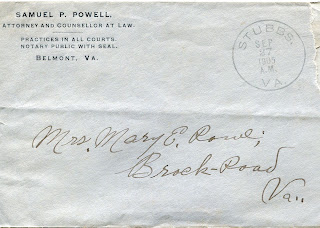 SAMUEL P. POWELL,
ATTORNEY AND COUNSELLOR AT LAW.
PRACTICES IN ALL COURTS.
NOTARY PUBLIC WITH SEAL.
BELMONT, VA.
STUBBS.
SEP
A.M.
VA.
Mrs. Mary E. Rowe;
Brock-Road
Va..